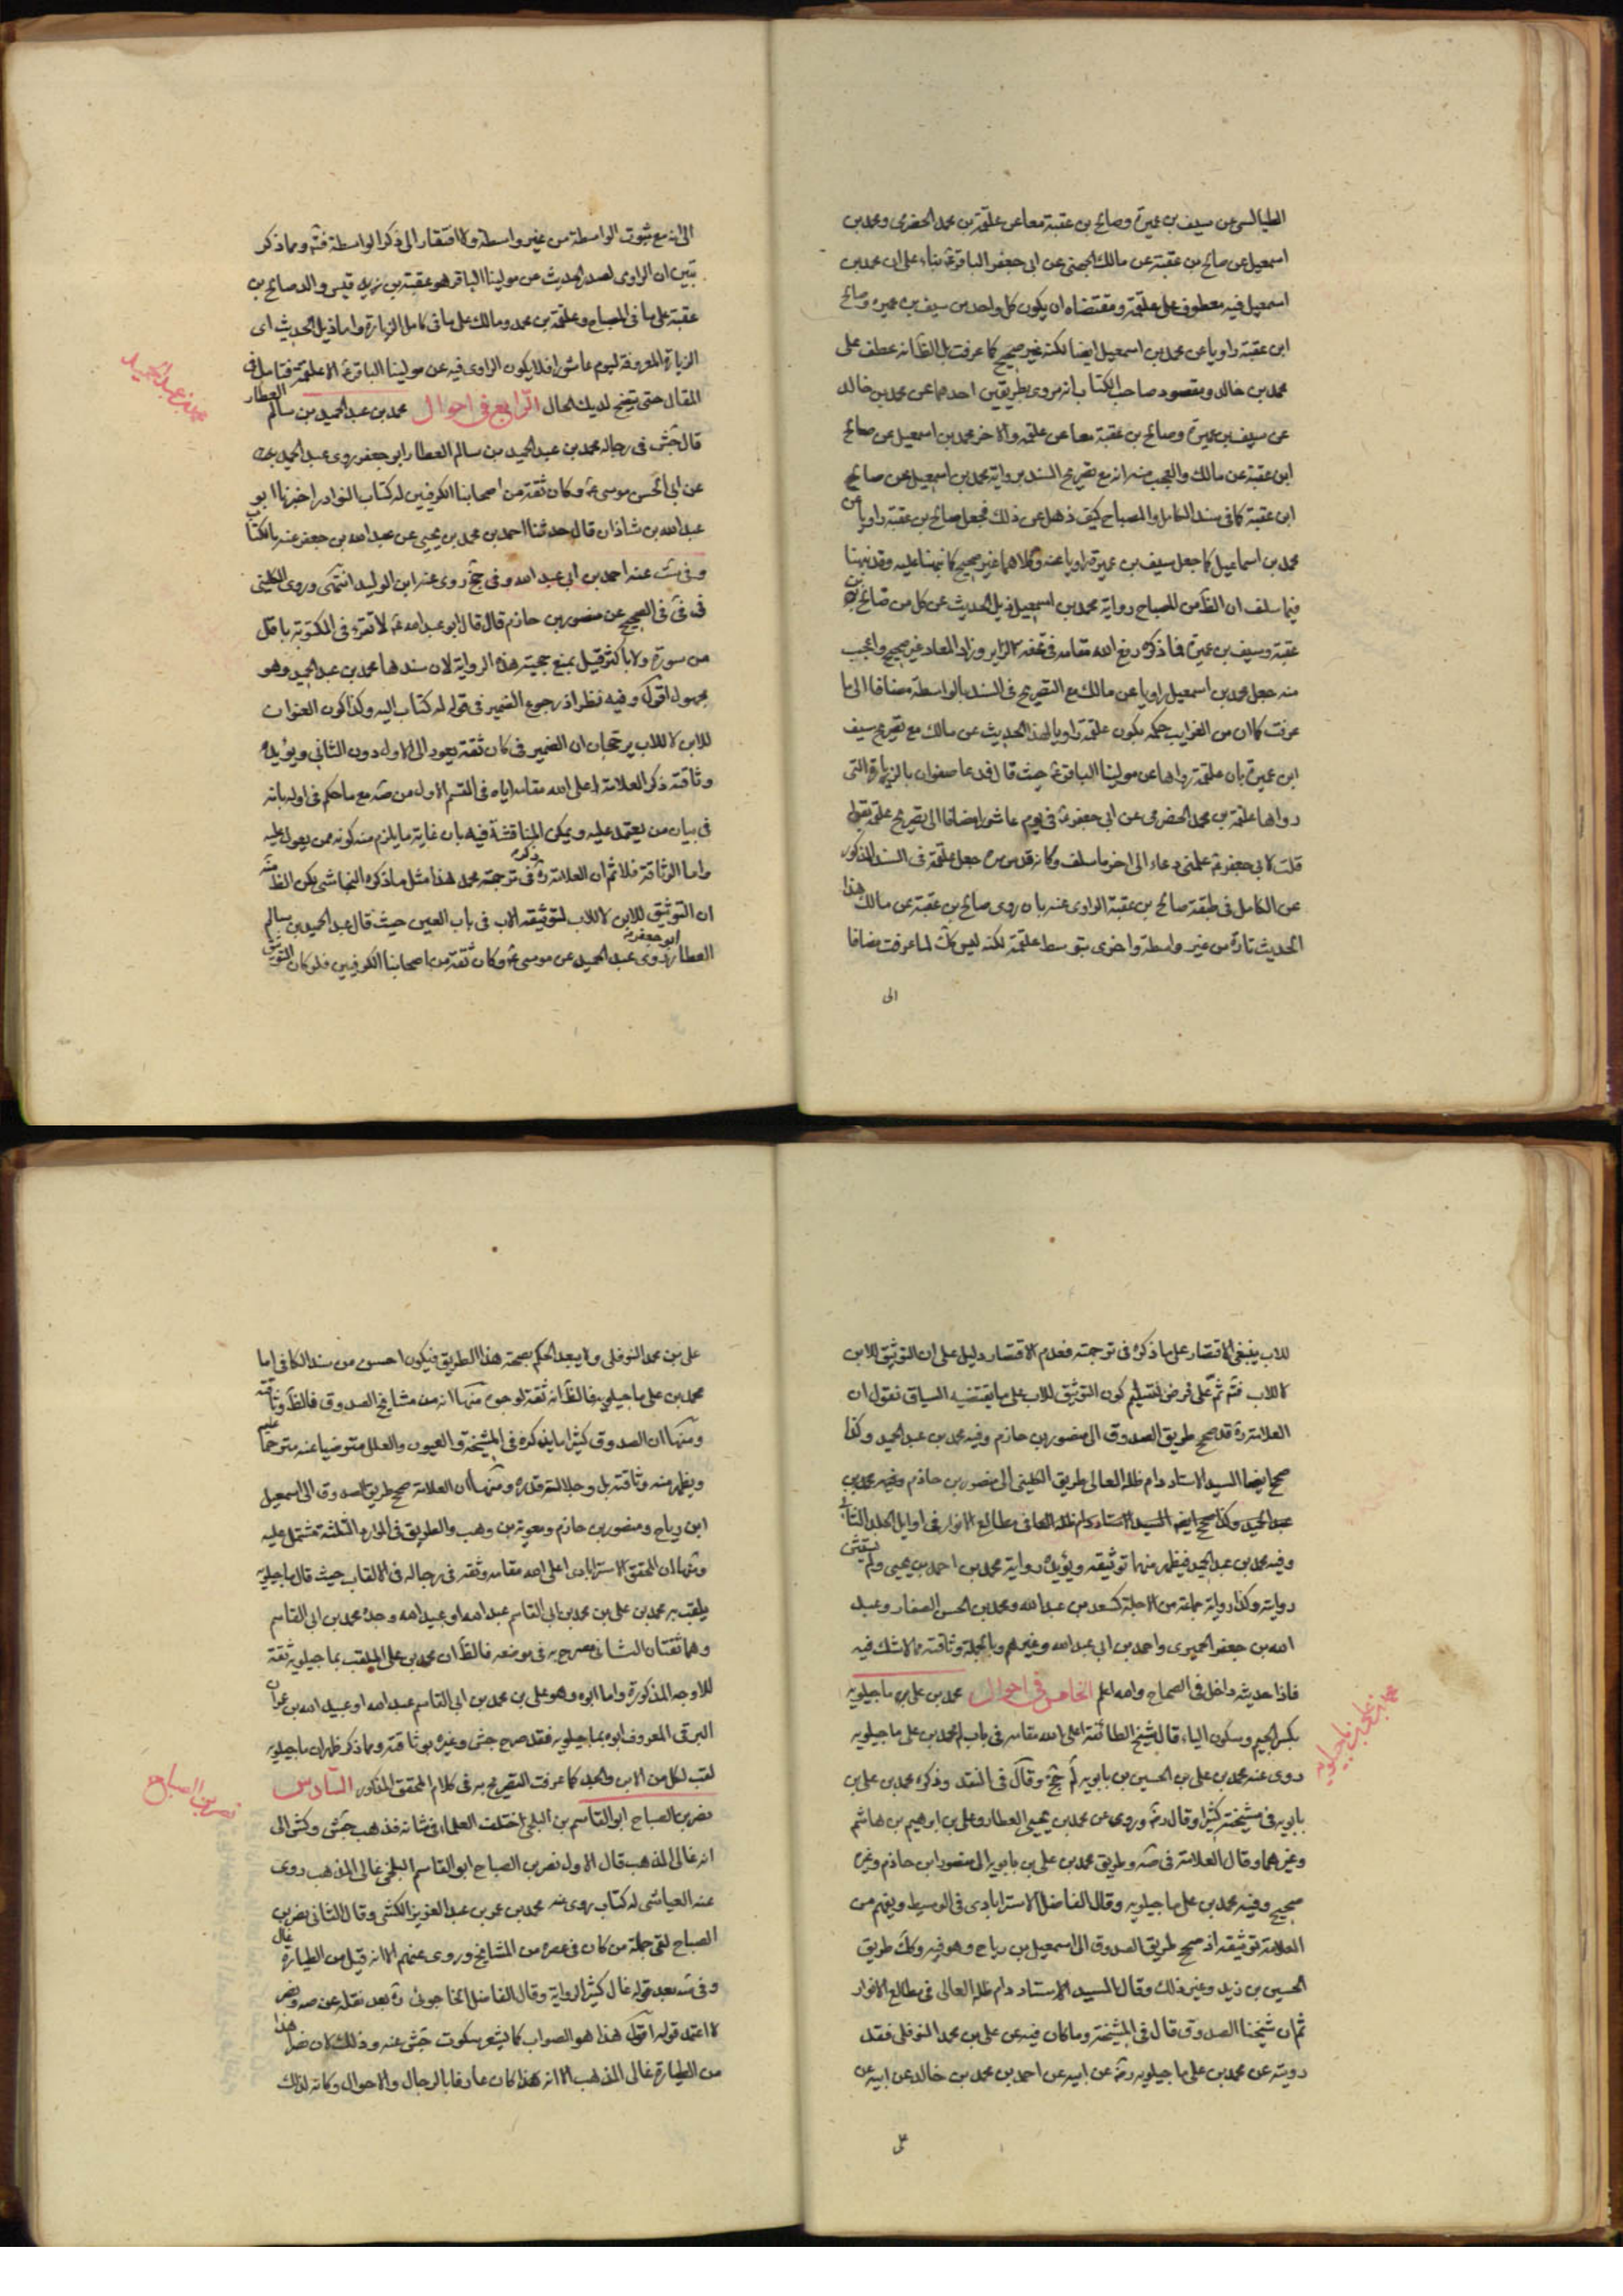 الطيالسى عن سيف بن عميرة وصالح بن عقبة معا عن علقمة بن محمد الحضرمى ومحمد بن
اسمعيل عن صالح بن عقبة عن مالك الجهنى عن ابى جعفر الباقر ع بناء على ان محمد بن
اسمعيل فيه معطوف على علقمة ومقتضاه ان يكون كل واحد من سيف بن عميره وصالح
ابن عقبة راويا عن محمد بن اسمعيل ايضا لكنه غير صحيح كما عرفت بل الظ انه عطف على
محمد بن خالد ومقصود صاحب الكتاب انه مروى بطريقين احدهما عن محمد بن خالد
عن سيف بن عميرة وصالح بن عقبة معا عن علقمه والاخر محمد بن اسمعيل عن صالح
ابن عقبة عن مالك والعجب منه انه مع تصريح السند برواية محمد بن اسمعيل عن صالح
ابن عقبة كما فى سند الكامل والمصباح كيف ذهل عن ذلك فجعل صالح بن عقبة راويا عن
محمد بن اسماعيل كما جعل سيف بن عميرة راويا عنه وكلاهما غير صحيح كما نبهنا عليه وقد نبهنا
فيما سلف ان الظ من المصباح رواية محمد بن اسمعيل ذيل الحديث عن كل من صالح بن
عقبة وسيف بن عميرة فما ذكره رفع الله مقامه فى تحفه الزاير وزاد المعاد غير صحيح واعجب
منه جعل محمد بن اسمعيل راويا عن مالك مع التصريح فى السند بالواسطة مضافا الى ما
عرفت كما ان من الغرايب حكمه بكون علقمة راويا لهذا الحديث عن مالك مع تصريح سيف
ابن عميرة بان علقمة رواها عن مولينا الباقر ع حيث قال فدعا صفوان بالزيارة التى
رواها علقمة بن محمد الحضرمى عن ابى جعفر ع فى يوم عاشورا مضافا الى تصريح علقمة بقوله
قلت لابى جعفر ع علمنى دعاء الى اخر ما سلف وكانه قدس سره جعل علقمة فى السند المذكور
عن الكامل فى طبقة صالح بن عقبة الراوى عنه بان روى صالح بن عقبة عن مالك هذا
الحديث تارة من غير واسطة واخرى بتوسط علقمة لكنه ليس كك لما عرفت مضافا
الى
الى انه مع ثبوت الواسطة من غير واسطة ولا افتقار الى ذكر الواسطة فثم ومما ذكر
تبين ان الراوى لصدر الحديث عن مولينا الباقر هو عقبة بن قيس والد صالح بن
عقبة على ما فى المصباح وعلقمة بن محمد ومالك على ما فى كامل الزيارة واما ذيل الحديث اى
الزيارة المعروفة ليوم عاشورا فلا يكون الراوى فيه عن مولينا الباقر ع الا علقمة فتامل فى
المقال حتى يتضح لديك الحال الرابع فى احوال محمد بن عبد الحميد بن سالم العطار
محمد بن عبد الحميد
قال جش فى رجاله محمد بن عبد الحميد بن سالم العطار ابو جعفر روى عبد الحميد
عن ابى الحسن موسى ع وكان ثقة من اصحابنا الكوفيين له كتاب النوادر اخبرنا ابو
عبد الله بن شاذان قال حدثنا احمد بن محمد بن يحيى عن عبد الله بن جعفر عنه بالكتاب
وفى ست عنه احمد بن ابى عبد الله وفى جخ روى عنه ابن الوليد انتهى وروى الكلينى
فى فى الصحيح عن منصور بن حازم قال قال ابو عبد الله ع لا تقرء فى المكتوبة باقل
من سورة ولا باكثر قيل بمنع حجيته هذه الرواية لان سندها محمد بن عبد الحميد وهو
مجهول اقول وفيه نظر اذ رجوع الضمير فى قوله له كتاب اليه وكذا كون العنوان
للابن لا للاب يرجحان ان الضمير فى كان ثقة يعود الى الاول دون الثانى ويؤيده
وثاقته ذكر العلامة اعلى الله مقامه اياه فى القسم الاول من صه مع ما حكم فى اوله بانه
فى بيان من يعتمد عليه ويمكن المناقشة فيه بان غاية ما يلزم منه كونه ممن يعول عليه
واما الوثاقة فلا ثم ان العلامة ره ذكره فى ترجمة محمد هذا مثل ما ذكره النجاشى لكن الظ منه
ان التوثيق للابن لا للاب لتوثيقه الاب فى باب العين حيث قال عبد الحميد بن سالم
العطار ابو جعفر روى عبد الحميد عن موسى ع وكان ثقة من اصحابنا الكوفيين فلو كان التوثيق
للاب ينبغى الاقتصار على ما ذكره فى ترجمته فعدم الاقتصار دليل على ان التوثيق للابن
لا للاب فثم ثم على فرض تسليم كون التوثيق للاب على ما يقتضيه السياق نقول ان
العلامة ره قد صحح طريق الصدوق الى منصور بن حازم وفيه محمد بن عبد الحميد وكذا
صحح ايضا السيد الاستاد دام ظله العالى طريق الكلينى الى منصور بن حازم وفيه محمد بن
عبد الحميد وكذا صحح ايضا السيد الاستاد دام ظله العالى فى مطالع الانوار فى اوايل الجلد الثانى
وفيه محمد بن عبد الحميد فيظهر منهما توثيقه ويؤيده رواية محمد بن احمد بن يحيى ولم يستثن
روايته وكذا رواية جماعة من الاجلة كسعد بن عبد الله ومحمد بن الحسن الصفار وعبد
الله بن جعفر الحميرى واحمد بن ابى عبد الله وغيرهم وبالجملة وثاقته مما لا شك فيه
فاذا حديثه داخل فى الصحاح والله اعلم الخامس فى احوال محمد بن على بن ماجيلويه
محمد بن على بن ماجيلويه
بكسر الجيم وسكون الياء قال شيخ الطائفة اعلى الله مقامه فى باب لم محمد بن على ماجيلويه
روى عنه محمد بن على بن الحسين بن بابويه لم جخ وقال فى النقد وذكره محمد بن على بن
بابويه فى مشيخته كثيرا وقال رض وروى عن محمد بن يحيى العطار وعلى بن ابراهيم بن هاشم
وغيرهما وقال العلامة فى صه وطريق محمد بن على بن بابويه الى منصور ابن حازم وغيره
صحيح وفيه محمد بن على ماجيلويه وقال الفاضل الاسترابادى فى الوسيط ويفهم من
العلامة توثيقه اذ صحح طريق الصدوق الى اسمعيل بن رباح وهو فيه وكك طريق
الحسين بن زيد وغير ذلك وقال السيد الاستاد دام ظله العالى فى مطالع الانوار
ثم ان شيخنا الصدوق قال فى المشيخة وما كان فيه عن على بن محمد النوفلى فقد
رويته عن محمد بن على ماجيلويه رض عن ابيه عن احمد بن محمد بن خالد عن ابيه عن
على
على بن محمد النوفلى ولا يبعد الحكم بصحة هذا الطريق فيكون احسن من سند الكافى اما
محمد بن على ماجيلويه فالظ انه ثقة لوجوه منها انه من مشايخ الصدوق فالظ وثاقته
ومنها ان الصدوق كثيرا ما يذكره فى المشيخة والعيون والعلل مترضيا عنه مترحما عليه
ويظهر منه وثاقته بل وجلالة قدره ومنها ان العلامة صحح طريق الصدوق الى اسمعيل
ابن رباح ومنصور بن حازم ومعوية بن وهب والطريق فى الموارد الثلثة مشتمل عليه
ومنها ان المحقق الاسترابادى اعلى الله مقامه وثقه فى رجاله فى الالقاب حيث قال ماجيلويه
يلقب به محمد بن على بن محمد بن ابى القاسم عبد الله او عبيد الله وجده محمد بن ابى القاسم
وهما ثقتان الثانى مصرح به فى موضعه فالظ ان محمد بن على الملقب بماجيلويه ثقة
للاوجه المذكورة واما ابوه وهو على بن محمد بن ابى القاسم عبد الله او عبيد الله بن عمران
البرقى المعروف ابوه بماجيلويه فقد صرح جش وغيره بوثاقته ومما ذكر ظهر ان ماجيلويه
لقب لكل من الاب والجد كما عرفت التصريح به فى كلام المحقق المذكور السادس
نصر بن الصباح
نصر بن الصباح ابو القاسم بن البلخى اختلف العلماء فى شانه فذهب جش وكش الى
انه غالى المذهب قال الاول نصر بن الصباح ابو القاسم البلخى غالى المذهب روى
عنه العياشى له كتاب روى عنه محمد بن عمر بن عبد العزيز الكشى وقال الثانى نصر بن
الصباح لقى جملة من كان فى عصره من المشايخ وروى عنهم الا انه قيل من الطيارة غال
وفى صه بعد قوله غال كثير الرواية وقال الفاضل الخاجوئى ره بعد نقله عن صه ونصر
لا اعتمد قوله اقول هذا هو الصواب كما يشعر سكوت جش عنه وذلك لان نصر هذا
من الطيارة غالى المذهب الا انه هذا كان عارفا بالرجال والاحوال وكانه لذلك